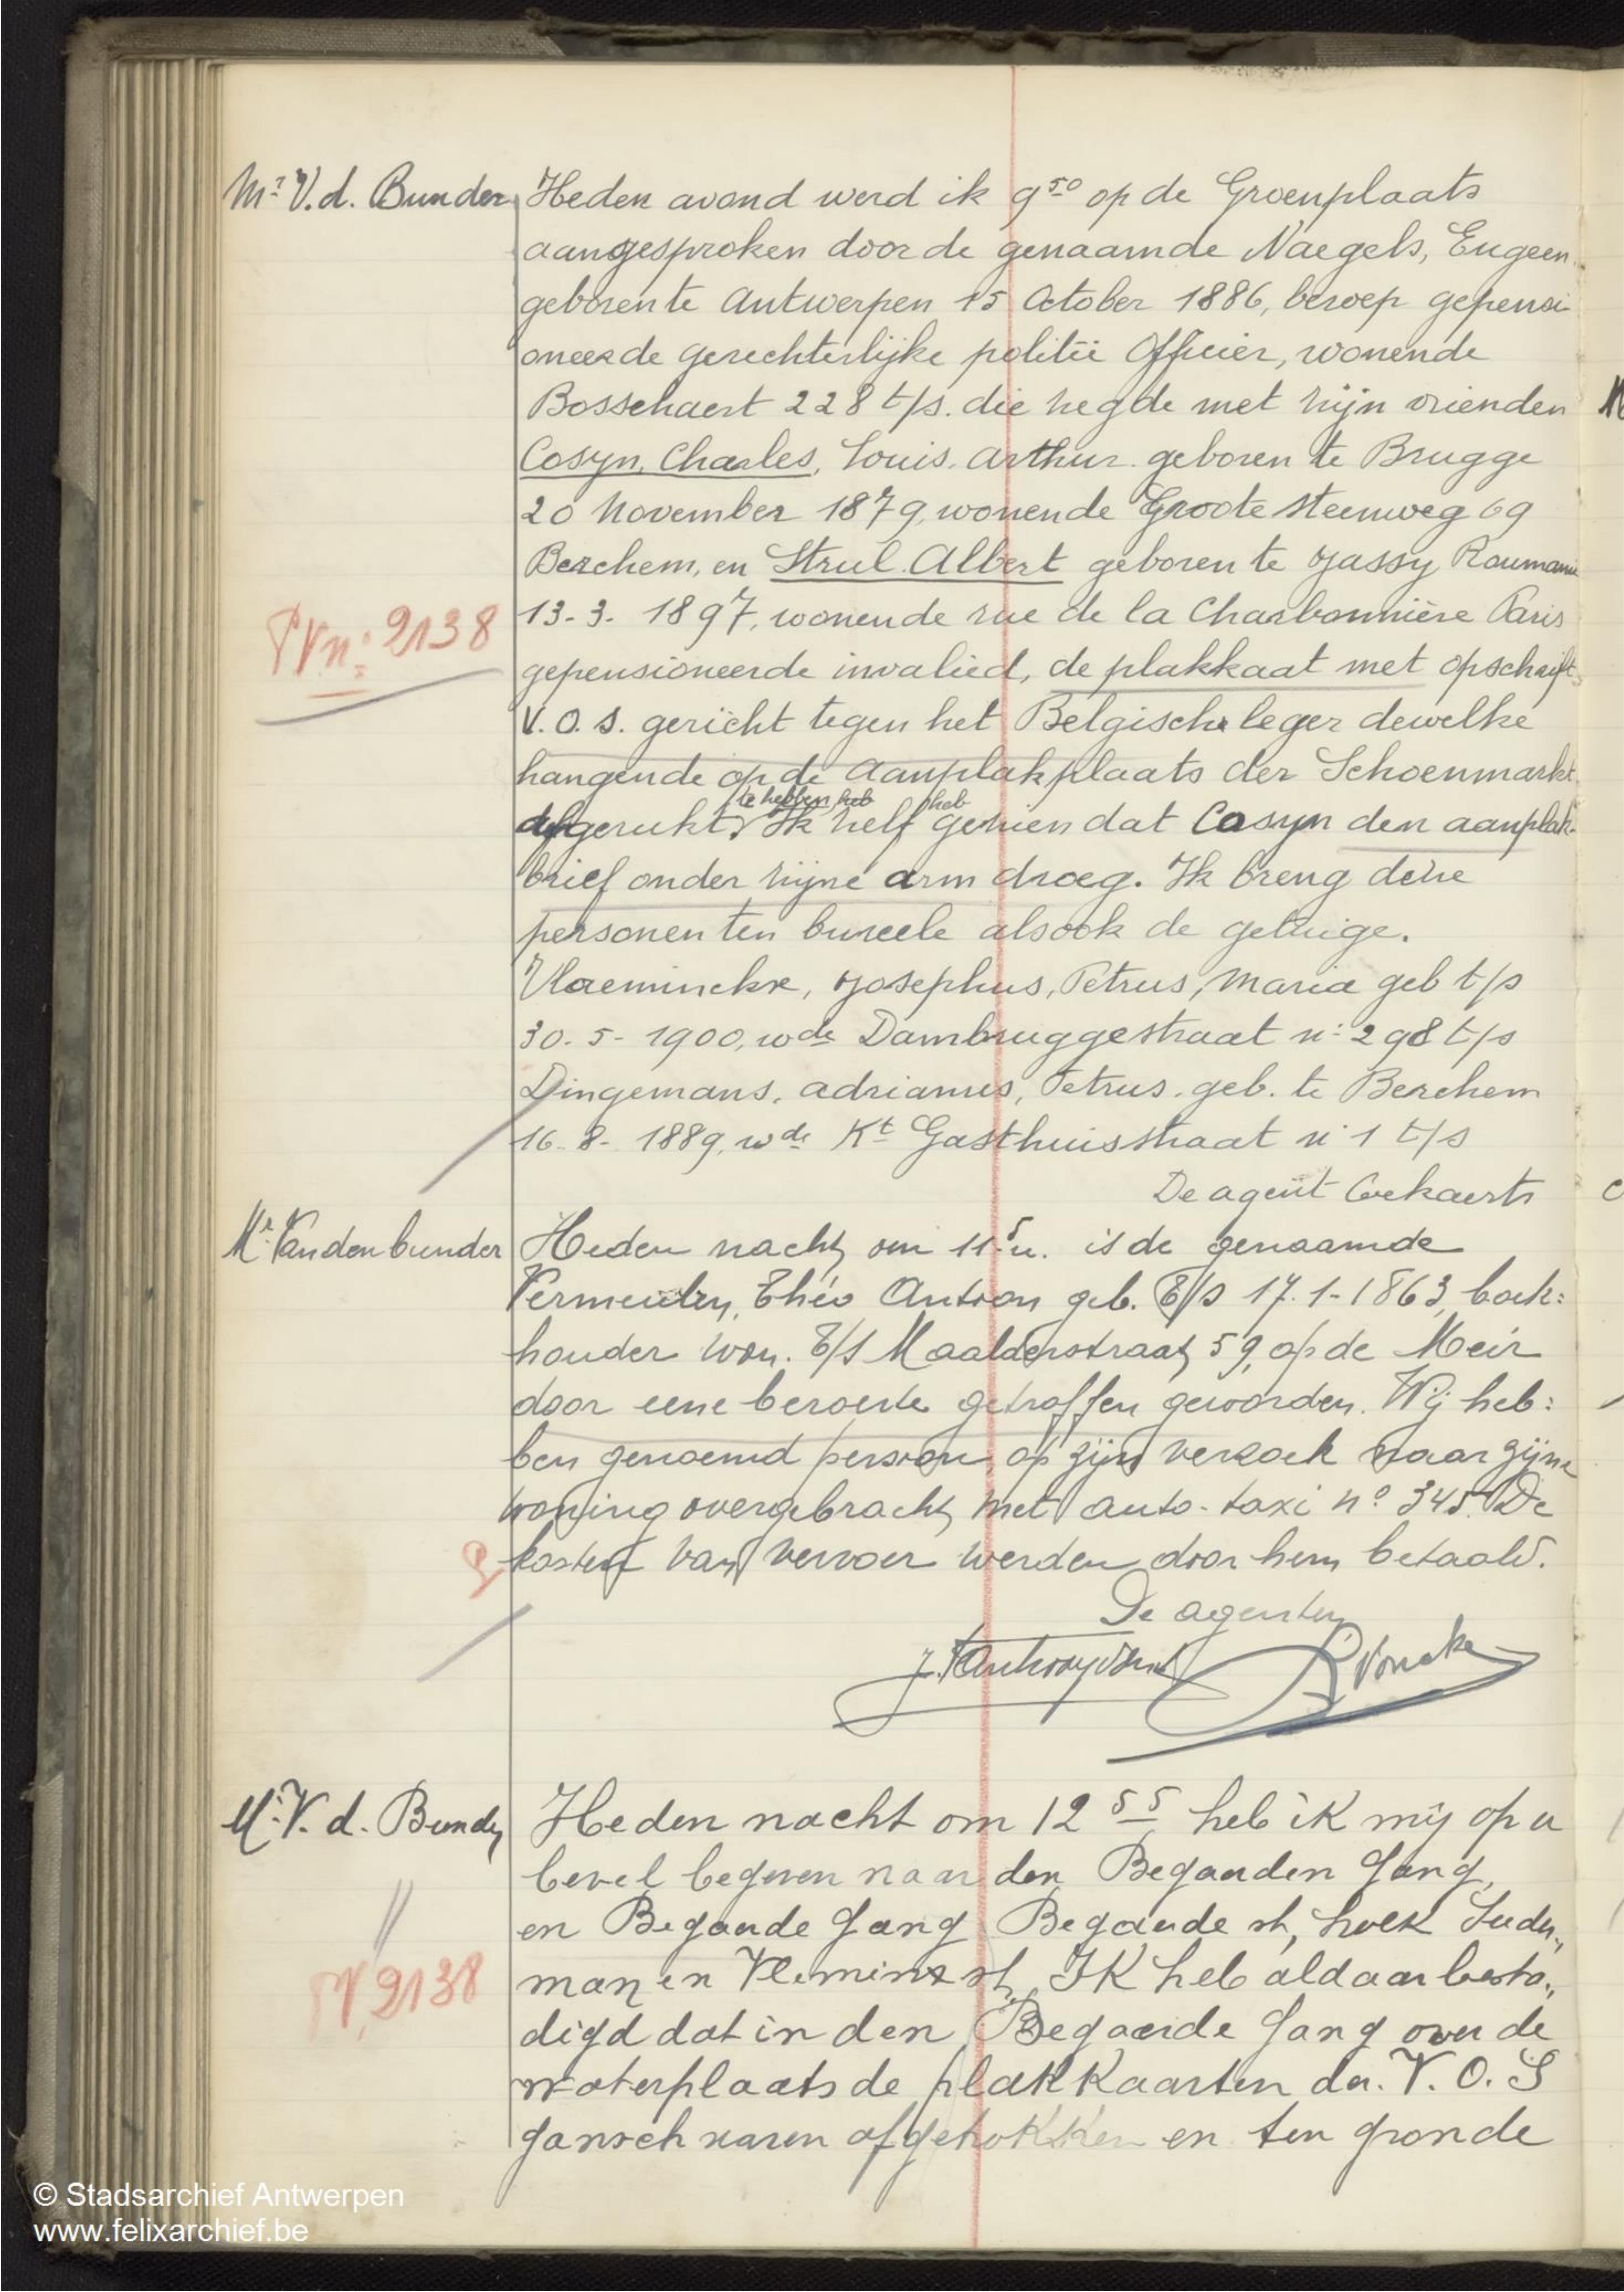 Mr V.d. Bunder
Heden avond werd ik 9 50 op de Groenplaats
aangesproken door de genaamde Naegels, Eugeen
geboren te Antwerpen 15 October 1886, beroep gepensi
oneerde gerechterlijke politie Officier, wonende
Bosschaert 228 t/s. die zegde met zijn vrienden
Cosyn, Charles, Louis, Arthur geboren te Brugge
20 November 1879, wonende Groote steenweg 69
Berchem, en Strul Albert geboren te Jassy Roumanie
13-3-1897, wonende rue de la Charbonnière Paris
PV n: 2138
gepensioneerde invalied, de plakkaat met opschrift
V.O.S. gericht tegen het Belgische leger dewelke
hangende op de aanplakplaats der Schoenmarkt
te hebben heb heb
afgerukt, Ik zelf gezien dat Cosyn den aanplak-
brief onder zijne arm droeg. Ik breng deze
personen ten bureele alsook de getuige.
Vlaeminckx, Josephus, Petrus, Maria geb t/s
30-5-1900, wde Dambruggestraat n: 298 t/s
Dingemans, Adrianus, Petrus. geb. te Berchem
16-8-1889, wde Kt Gasthuisstraat n: 1 t/s
De agent
Mr Vandenbunder
Heden nacht om 11 5 u. is de genaamde
Théo Antoon geb. T/S 17-1-1863, boek:
houder won. T/S Maalderstraat 59, op de Meir
door eene beroerte getroffen geworden. Wij heb:
ben genoemd persoon op zijn verzoek naar zijne
woning overgebracht met auto-taxi no 345. De
kosten van vervoer werden door hem betaald.
De agenten
Mr V. d. Bunder
Heden nacht om 12 55 heb ik mij op u
bevel begeven naar den Begaarden Gang,
en Begaarde Gang Begaarde st, hoek Suder„
man en Vleminx st, Ik heb aldaar besta„
PV, 2138
digd dat in den Begaarde Gang over de
waterplaats de plakkaarten der. V.O.S
gansch waren afgetrokken en ten gronde
© Stadsarchief Antwerpen
www.felixarchief.be